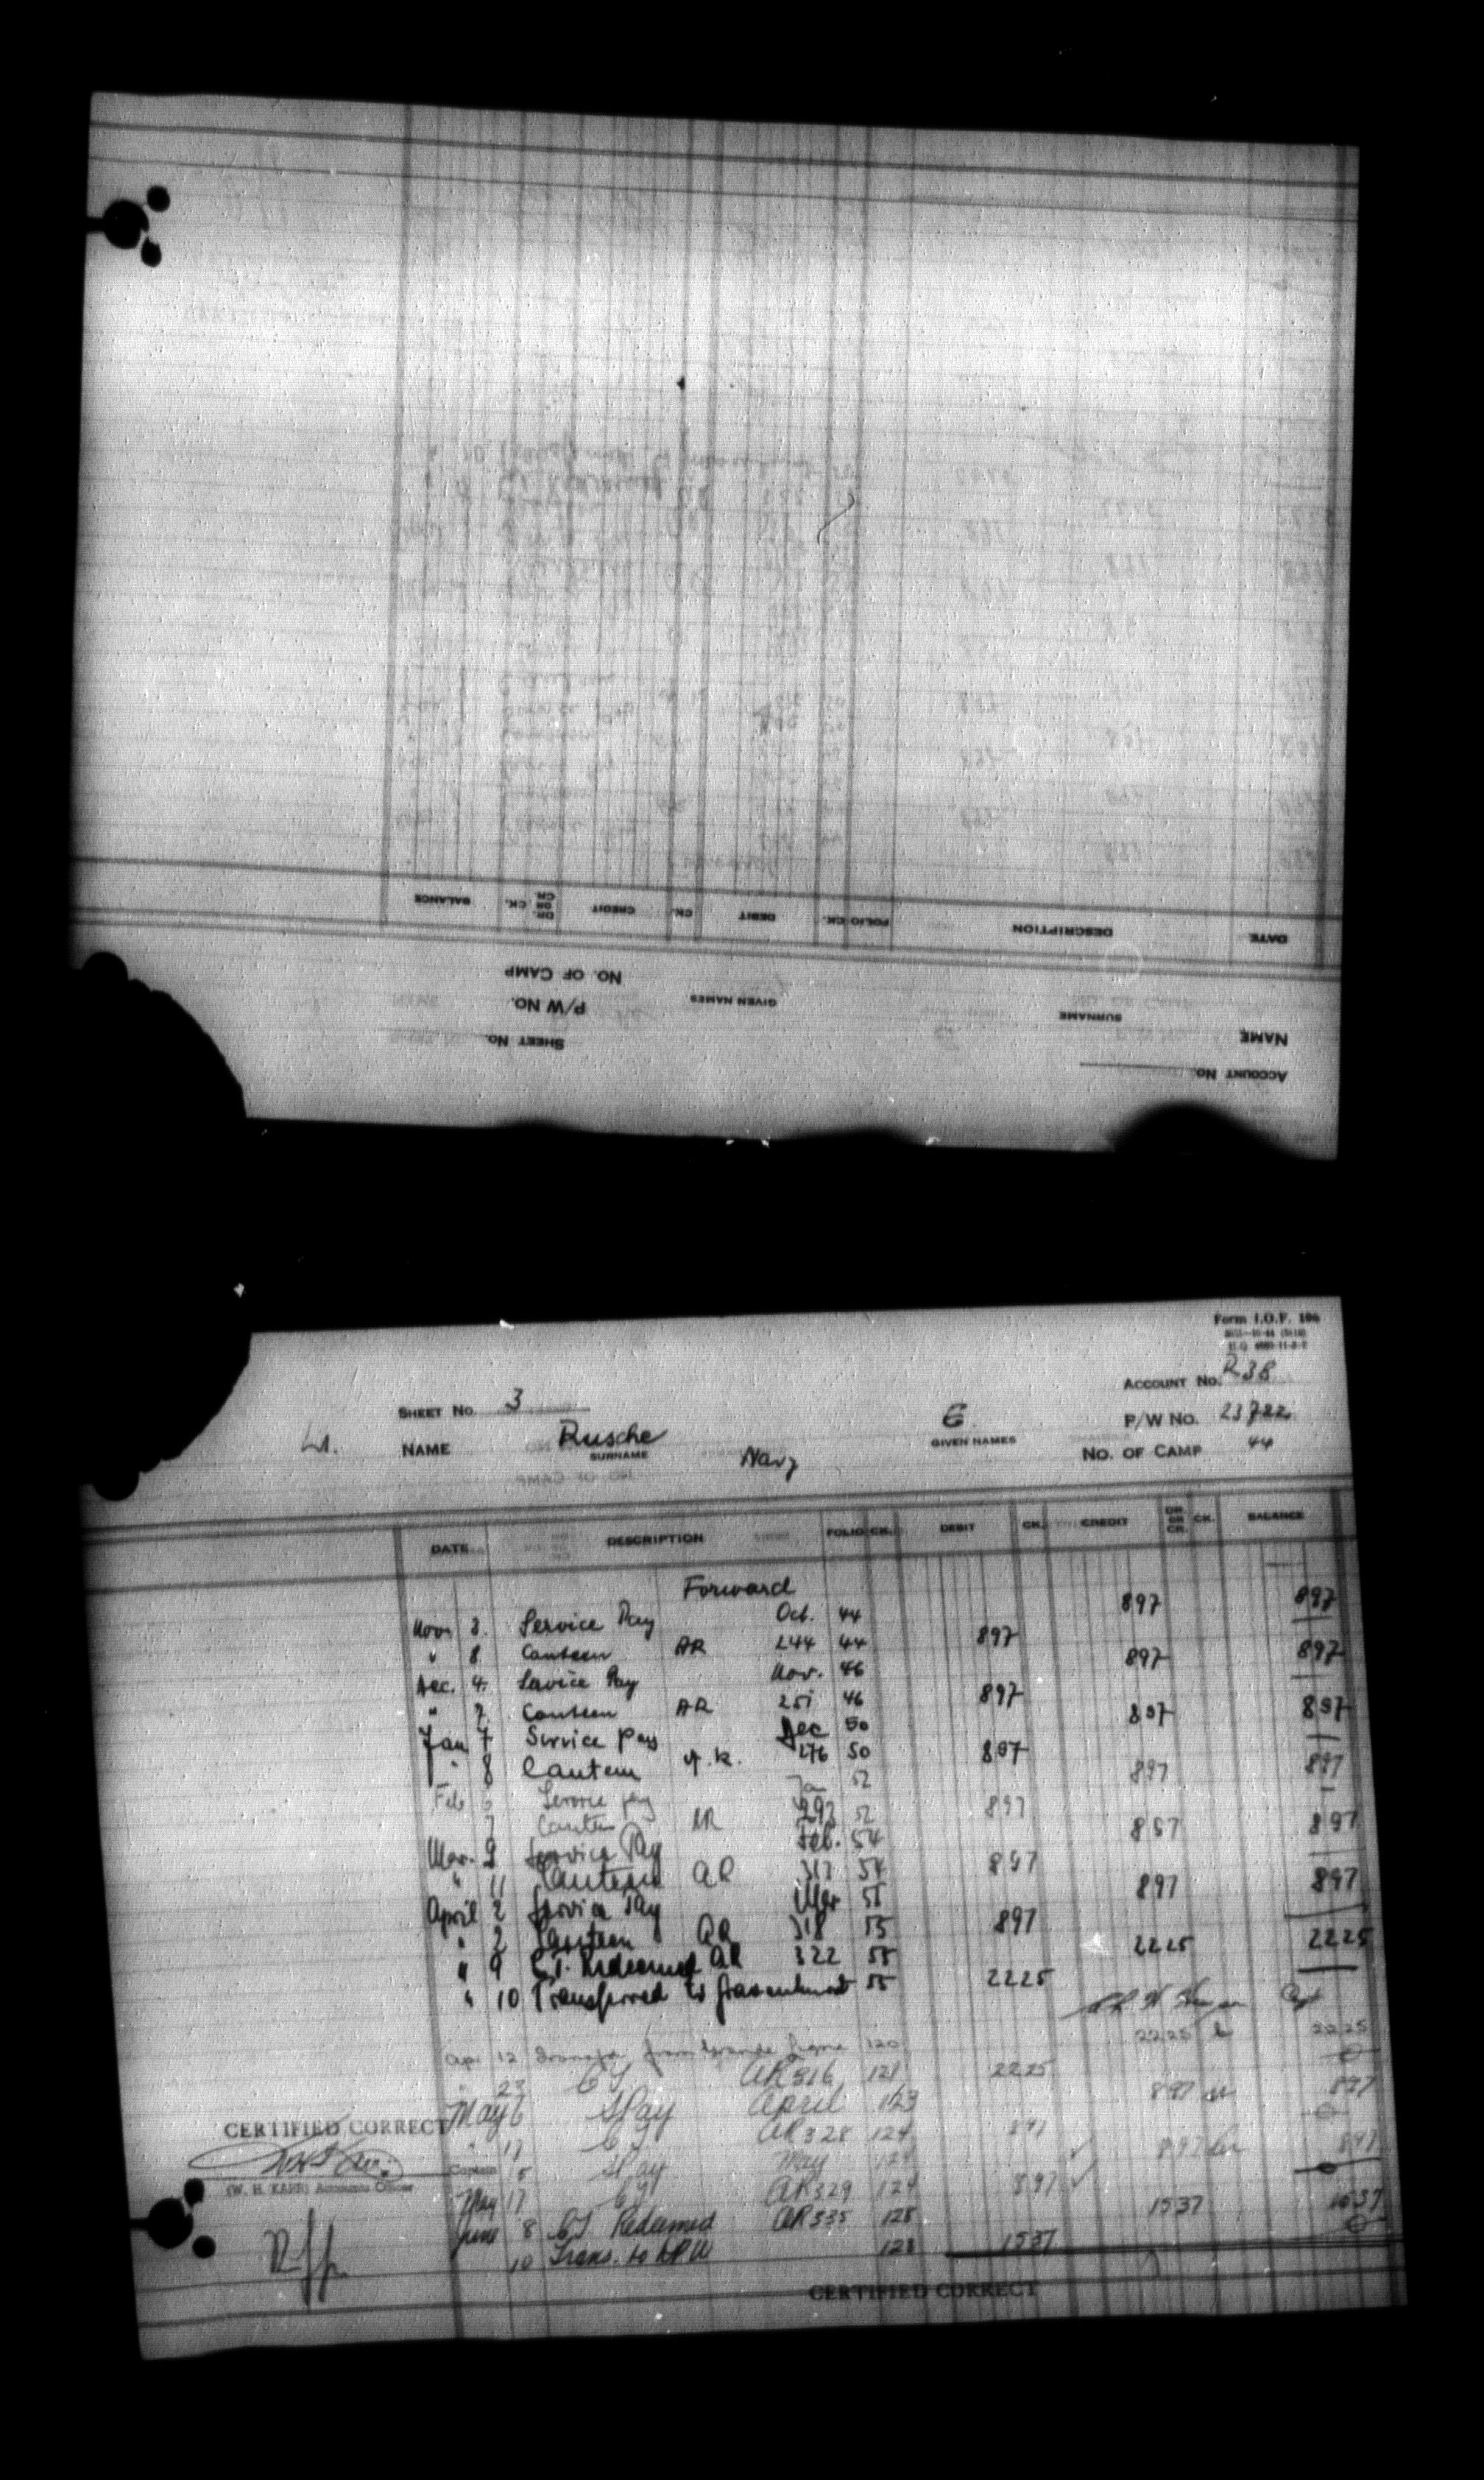 ACCOUNT No.
NAME
SURNAME
GIVEN NAMES
SHEET No.
P/W No.
NO. OF CAMP
DATE DESCRIPTION FOLIO CK. DEBIT CK. CREDIT DR. OR CR. CK. BALANCE
Form I.O.F. 106
ACCOUNT No. R38
SHEET No. 3
P/W No. 23722
Lt. NAME Rusche E
SURNAME GIVEN NAMES
Navy
NO. OF CAMP 44
DATE DESCRIPTION FOLIO CK. DEBIT CK. CREDIT DR. OR CR. CK. BALANCE
Forward
Nov. 3. Service Pay Oct. 44 897 897
" 8 Canteen AR 244 44 897
Dec. 4. Service Pay Nov. 46 897 897
" 7. Canteen AR 251 46 897
Jan 7 Service Pay Dec 50 897 897
" 8 Canteen A.R. 276 50 897
Feb Service pay Jan 52 897 897
7 Canteen AR 292 52 897
Mar. 9 Service Pay Feb. 54 897 897
" 11 Canteen AR 313 54 897
April 2 Service Pay Mar 55 897 897
" 2 Canteen AR 318 55 897
" 9 C.T. Redeemed AR 322 55 2225 2225
" 10 Transferred to Gravenhurst 55 2225
Apr 12 Transfer from Grande Ligne 120 2225 2225
" 23 CT AR 316 121 2225
May 6 SPay April 123 897 897
" 17 CT AR 328 124 897
5 SPay May 124 897 897
May 17 CT AR 329 124 897
June 8 CT Redeemed AR 335 128 1537 1537
10 Trans. to DPW 128 1537
CERTIFIED CORRECT
Captain
(W. H. KAHR) Accounts Officer
CERTIFIED CORRECT